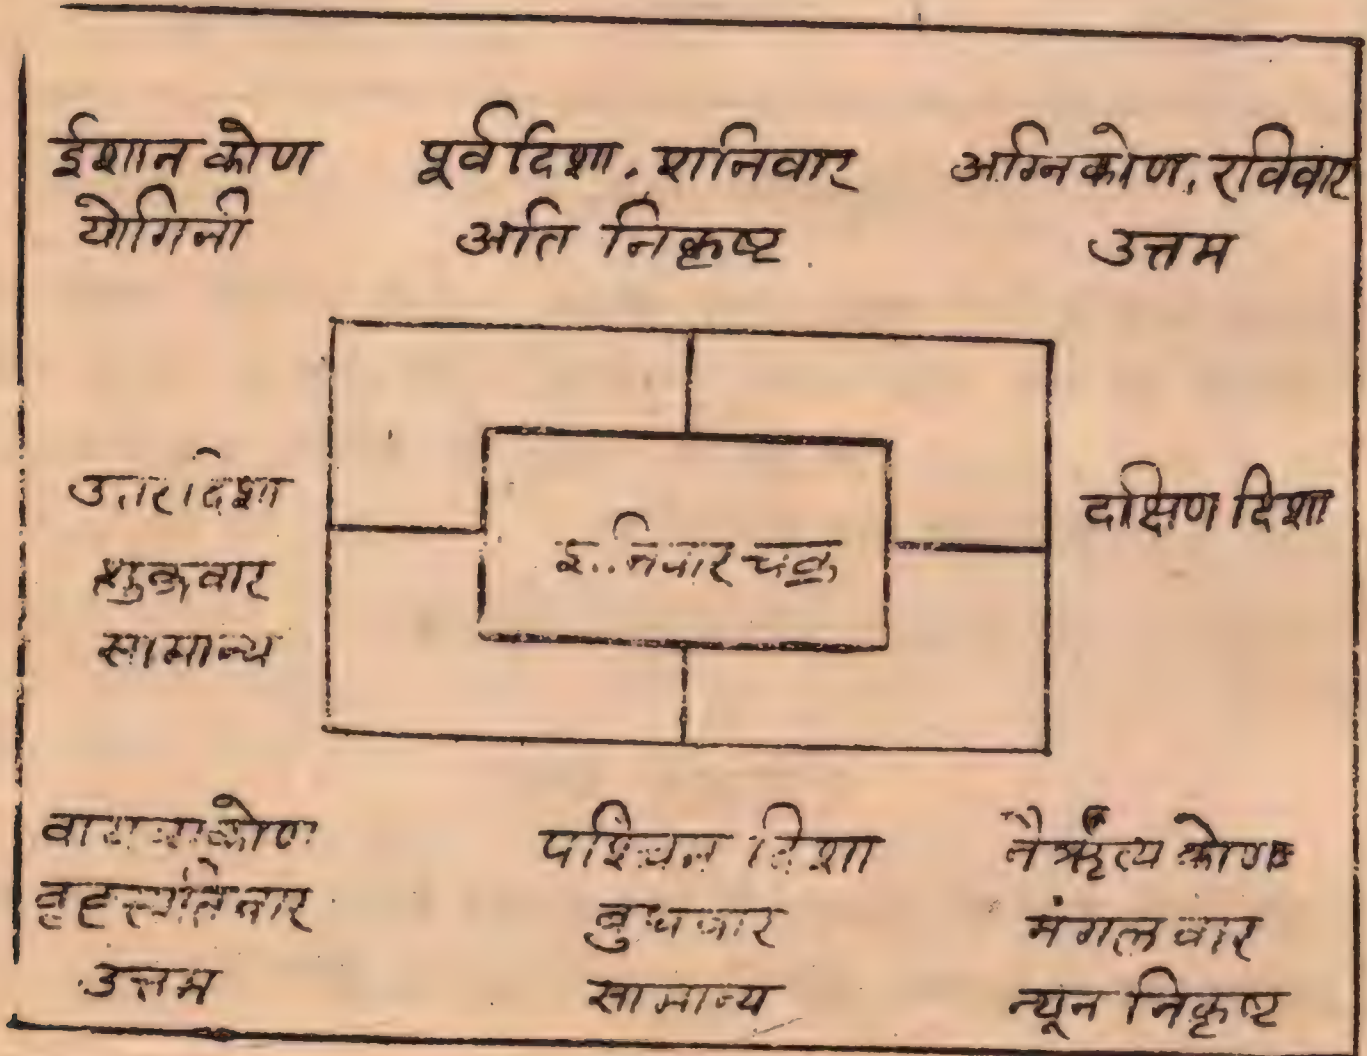 ईशान कोण
योगिनी
पूर्व दिशा, शनिवार
अति निकृष्ट
अग्निकोण, रविवार
उत्तम
उत्तर दिशा
शुक्रवार
सामान्य
शनिवार चक्र
दक्षिण दिशा
वायव्यकोण
वृहस्पतिवार
उत्तम
पश्चिम दिशा
बुधवार
सामान्य
नैर्ऋत्य कोण
मंगलवार
न्यून निकृष्ट